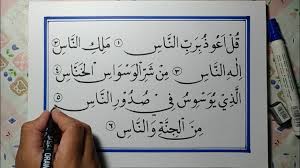 قُلْ أَعُوذُ بِرَبِّ النَّاسِ ١ مَلِكِ النَّاسِ ٢
إِلَٰهِ النَّاسِ ٣ مِن شَرِّ الْوَسْوَاسِ الْخَنَّاسِ ٤
الَّذِي يُوَسْوِسُ فِي صُدُورِ النَّاسِ ٥
مِنَ الْجِنَّةِ وَالنَّاسِ ٦